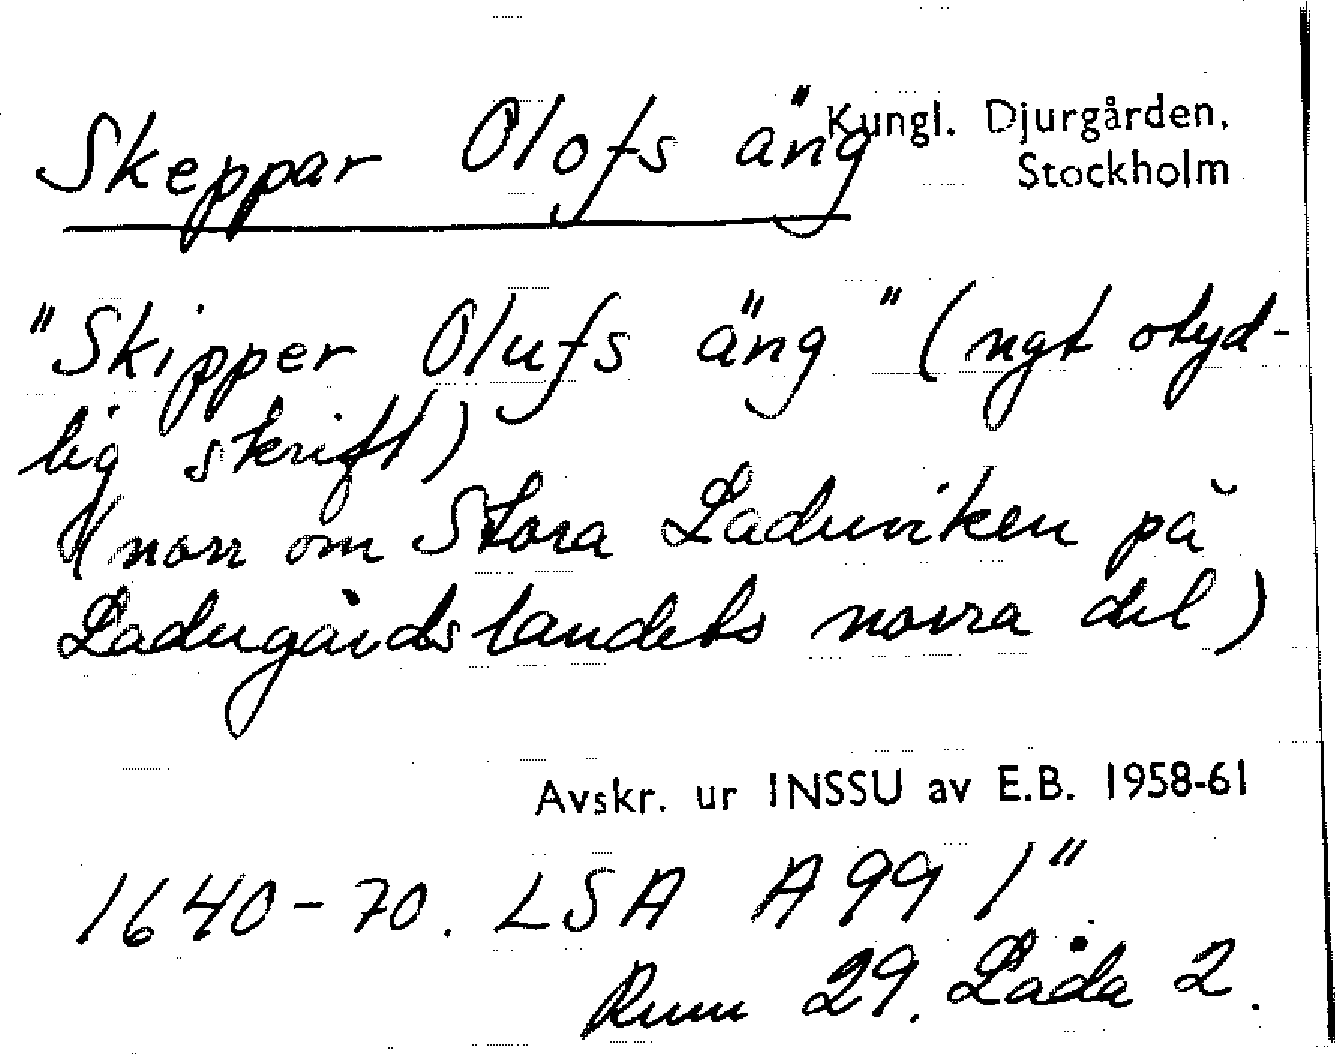 Skeppar Olofs äng
Kungl. Djurgården,
Stockholm
"Skipper Olufs äng" (ngt otyd-
lig skrift)
(norr om Stora Laduviken på
Ladugårdslandets norra del)
Avskr. ur INSSU av E.B. 1958-61
1640-70. LSA A99 1"
Rum 29. Låda 2.